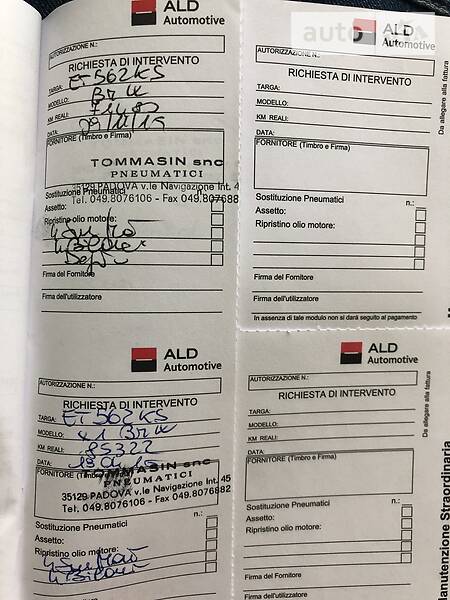 ALD
Automotive
AUTORIZZAZIONE N.:
RICHIESTA DI INTERVENTO
TARGA: ET562KS
MODELLO: BMW
KM REALI:
DATA:
FORNITORE (Timbro e Firma)
TOMMASIN snc
PNEUMATICI
35129 PADOVA v.le Navigazione Int. 4
Tel. 049.8076106 - Fax 049.807688
Sostituzione Pneumatici n.:
Assetto:
Ripristino olio motore:
Firma del Fornitore
Firma dell'utilizzatore
ALD
Automotive
AUTORIZZAZIONE N.:
RICHIESTA DI INTERVENTO
TARGA:
MODELLO:
KM REALI:
DATA:
FORNITORE (Timbro e Firma)
Sostituzione Pneumatici n.:
Assetto:
Ripristino olio motore:
Firma del Fornitore
Firma dell'utilizzatore
In assenza di tale modulo non si darà seguito al pagamento
Da allegare alla fattura
ALD
Automotive
AUTORIZZAZIONE N.:
RICHIESTA DI INTERVENTO
TARGA: ET562KS
MODELLO: X1 BMW
KM REALI: 85322
DATA:
FORNITORE (Timbro e Firma)
TOMMASIN snc
PNEUMATICI
35129 PADOVA v.le Navigazione Int. 45
Tel. 049.8076106 - Fax 049.8076882
Sostituzione Pneumatici n.:
Assetto:
Ripristino olio motore:
ALD
Automotive
AUTORIZZAZIONE N.:
RICHIESTA DI INTERVENTO
TARGA:
MODELLO:
KM REALI:
DATA:
FORNITORE (Timbro e Firma)
Sostituzione Pneumatici n.:
Assetto:
Ripristino olio motore:
Firma del Fornitore
Firma dell'utilizzatore
Da allegare alla fattura
Manutenzione Straordinaria